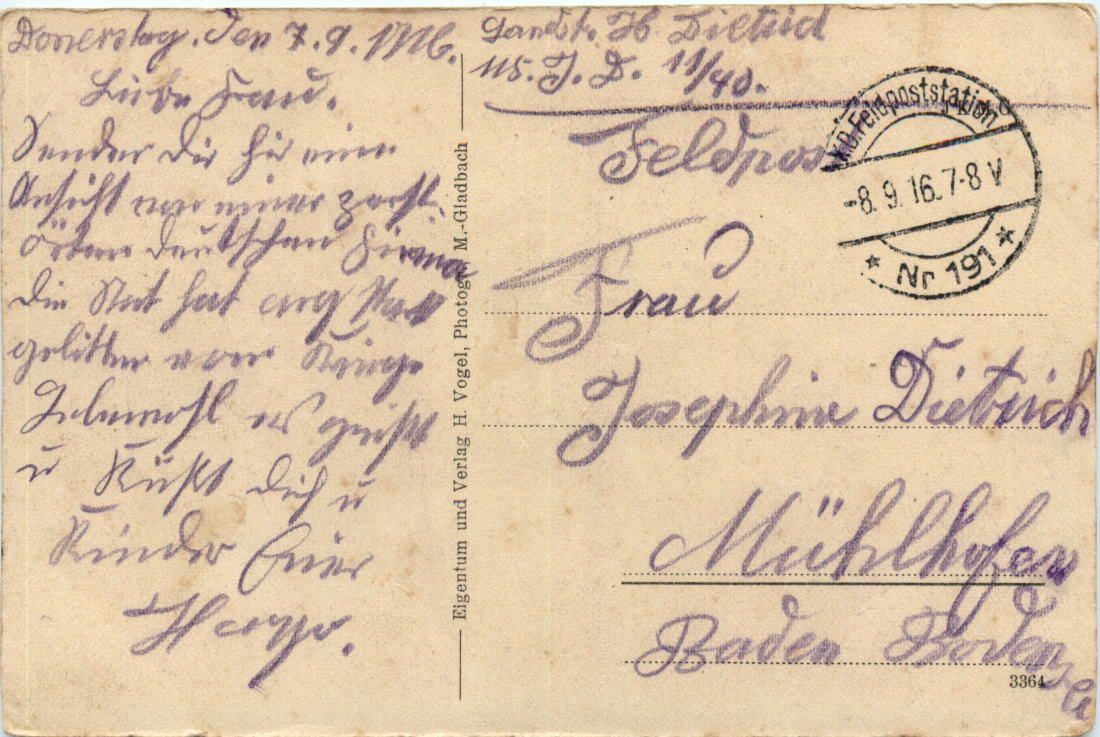 Donerstag, den 7. 9. 1916.
Liebe Frau.
Sender Dir hir eine
Ansicht von einer zerst-
örten Deutschen Firma
Die Stat hat arg stark
gelitten vom Kriege
Lebewohl es grüßt
u Küßt Dich u
Kinder Euer
Landst. H. Dietrich
115. J. D. 11/40.
Feldpost
K.D. Feldpoststation
-8. 9. 16. 7-8 V
* Nr 191 *
Frau
Josephine Dietrich
Mühlhofen
Baden
Eigentum und Verlag H. Vogel, Photogr., M.-Gladbach
3364